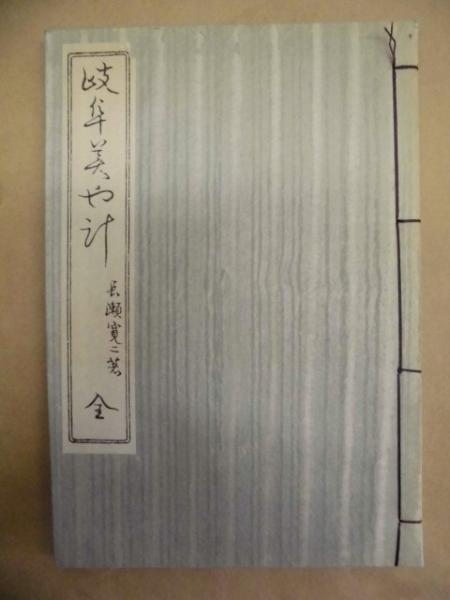 岐阜美や計
長瀬寛二著
全